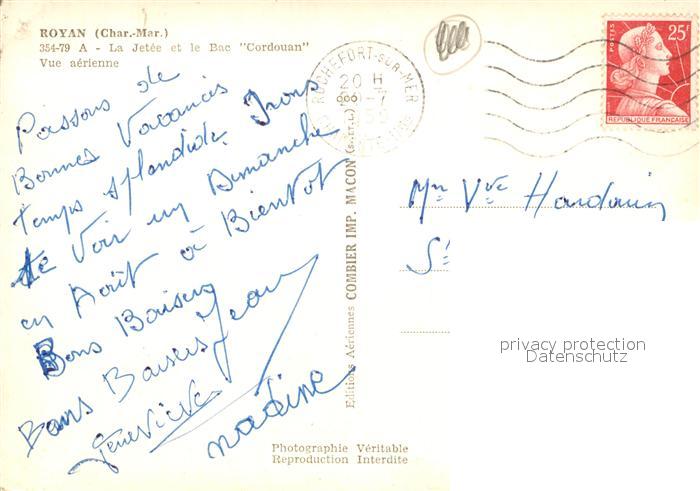 ROYAN (Char.-Mar.)
354-79 A - La Jetée et le Bac "Cordouan"
Vue aérienne
Passons de
Bonnes Vacances
temps splendide Irons
te Voir un Dimanche
en Août à Bientôt
Bons Baisers
Bons Baisers Jean
Geneviève
nadine
Editions Aériennes COMBIER IMP. MACON (S.-et-L.)
Photographie Véritable
Reproduction Interdite
ROCHEFORT-SUR-MER
20 H
POSTES
25F
REPUBLIQUE FRANÇAISE
Mme Vve Hardouin
St
privacy protection
Datenschutz